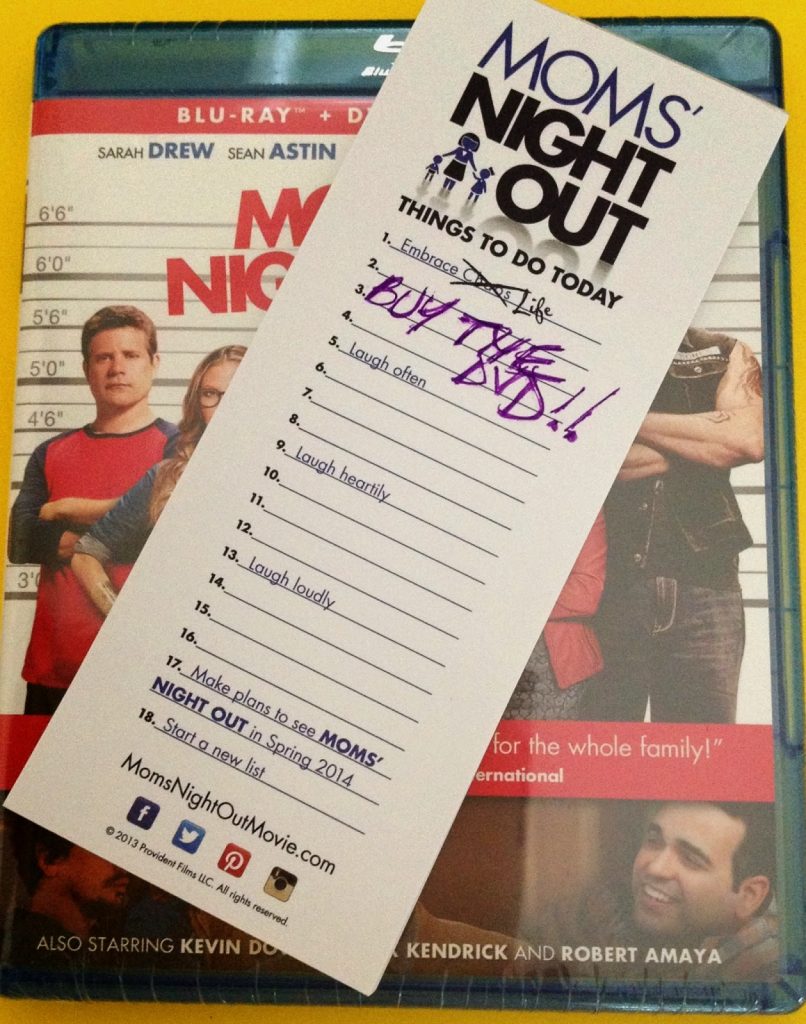 Blu
BLU-RAY™ + D
SARAH DREW SEAN ASTIN
MO
NIG
6'6"
6'0"
5'6"
5'0"
4'6"
3'
MOMS'
NIGHT
OUT
THINGS TO DO TODAY
1. Embrace Chaos Life
2.
3.
BUY THE
DVD!!
4.
5. Laugh often
6.
7.
8.
9. Laugh heartily
10.
11.
12.
13. Laugh loudly
14.
15.
16.
17. Make plans to see MOMS'
NIGHT OUT in Spring 2014
18. Start a new list
MomsNightOutMovie.com
© 2013 Provident Films LLC. All rights reserved.
for the whole family!"
ernational
ALSO STARRING KEVIN DO KENDRICK AND ROBERT AMAYA